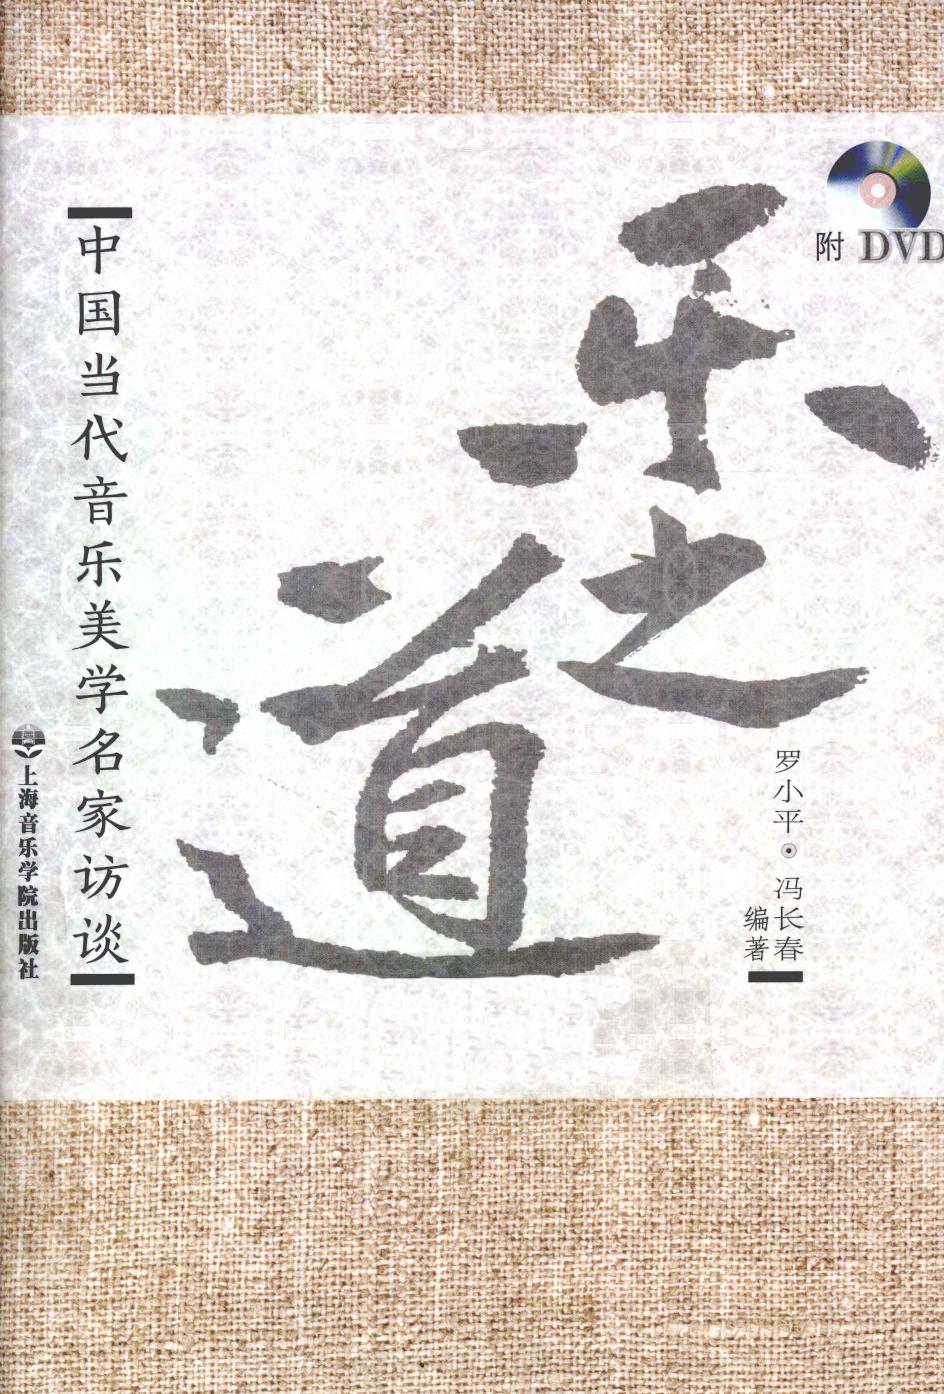 附 DVD
乐之道
中国当代音乐美学名家访谈
罗小平⊙冯长春
编著
上海音乐学院出版社